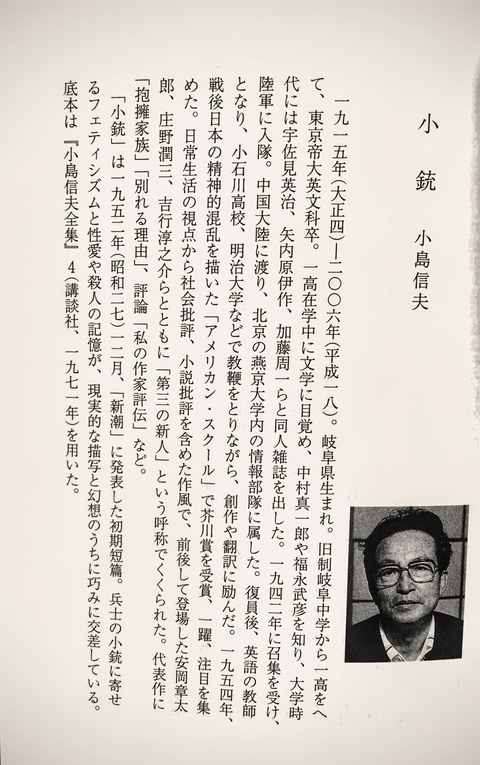 小銃
小島信夫
一九一五年(大正四)―二〇〇六年(平成一八)。岐阜県生まれ。旧制岐阜中学から一高をへ
て、東京帝大英文科卒。一高在学中に文学に目覚め、中村真一郎や福永武彦を知り、大学時
代には宇佐見英治、矢内原伊作、加藤周一らと同人雑誌を出した。一九四二年に召集を受け、
陸軍に入隊。中国大陸に渡り、北京の燕京大学内の情報部隊に属した。復員後、英語の教師
となり、小石川高校、明治大学などで教鞭をとりながら、創作や翻訳に励んだ。一九五四年、
戦後日本の精神的混乱を描いた「アメリカン・スクール」で芥川賞を受賞、一躍、注目を集
めた。日常生活の視点から社会批評、小説批評を含めた作風で、前後して登場した安岡章太
郎、庄野潤三、吉行淳之介らとともに「第三の新人」という呼称でくくられた。代表作に
「抱擁家族」「別れる理由」、評論「私の作家評伝」など。
「小銃」は一九五二年(昭和二七)一二月、「新潮」に発表した初期短篇。兵士の小銃に寄せ
るフェティシズムと性愛や殺人の記憶が、現実的な描写と幻想のうちに巧みに交差している。
底本は『小島信夫全集』4(講談社、一九七一年)を用いた。